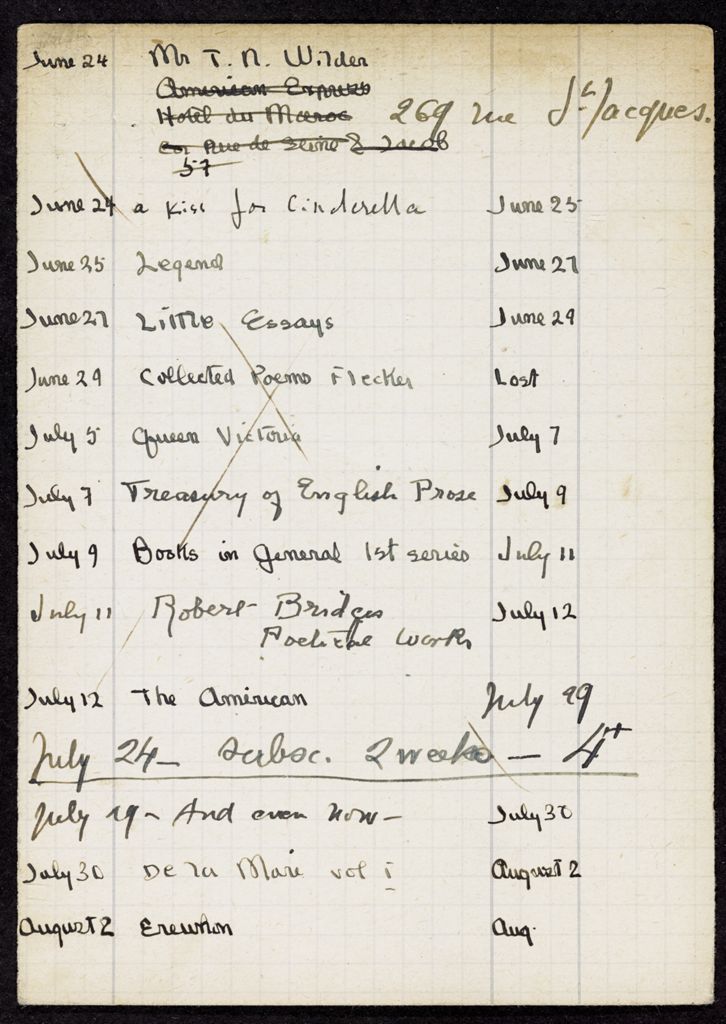 June 24 Mr T. N. Wilder
American Express
Hotel du Maroc 269 rue St Jacques.
cor Rue de Seine & Jacob
57
June 24 a Kiss for Cinderella June 25
June 25 Legend June 27
June 27 Little Essays June 29
June 29 Collected Poems Flecker Lost
July 5 Queen Victoria July 7
July 7 Treasury of English Prose July 9
July 9 Books in General 1st series July 11
July 11 Robert Bridges July 12
Poetical Works
July 12 The American July 29
July 24 — subsc. 2 weeks — 4
July 29 — And even now — July 30
July 30 De la Mare vol I August 2
August 2 Erewhon Aug.